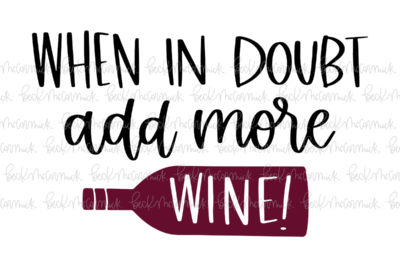 WHEN IN DOUBT
add more
WINE!